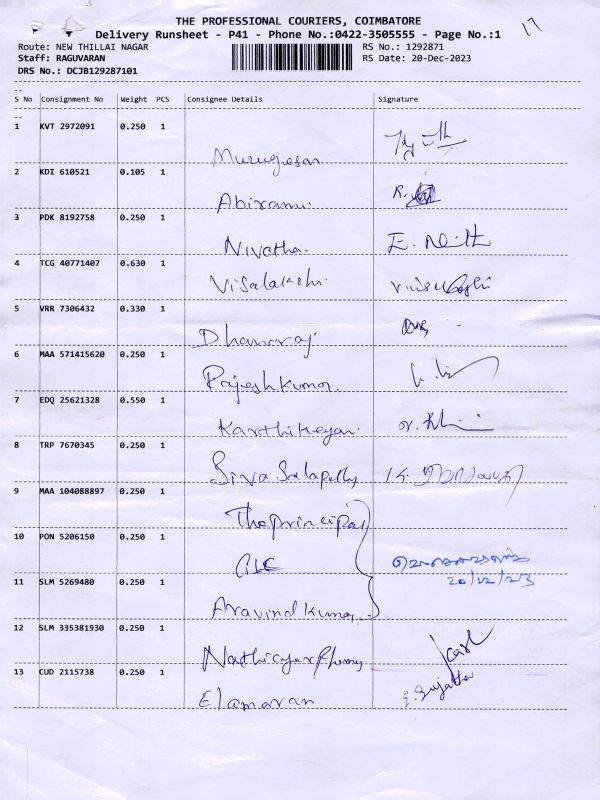 THE PROFESSIONAL COURIERS, COIMBATORE
17
Delivery Runsheet - P41 - Phone No.:0422-3505555 - Page No.:1
Route: NEW THILLAI NAGAR RS No.: 1292871
Staff: RAGUVARAN RS Date: 20-Dec-2023
DRS No.: DCJB129287101
--
S No Consignment No Weight PCS Consignee Details Signature
--
1 KVT 2972091 0.250 1
Murugesan
2 KDI 610521 0.105 1
Abirami. R.
3 PDK 8192758 0.250 1
Nivetha. E.
4 TCG 40771407 0.630 1
Visalakshi
5 VRR 7306432 0.330 1
Dhanaraj
6 MAA 571415620 0.250 1
Rajeshkumar.
7 EDQ 25621328 0.550 1
Karthikeyan.
8 TRP 7670345 0.250 1
Siva
9 MAA 104088897 0.250 1
The principal
10 PON 5206150 0.250 1
20/12/23
11 SLM 5269480 0.250 1
Aravind Kumar
12 SLM 335381930 0.250 1
13 CUD 2115738 0.250 1
Elamaran Sujatha